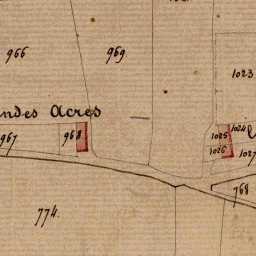 966
969
1023
ndes Acres
967
968
1025
1024
1026
1027
768
774.